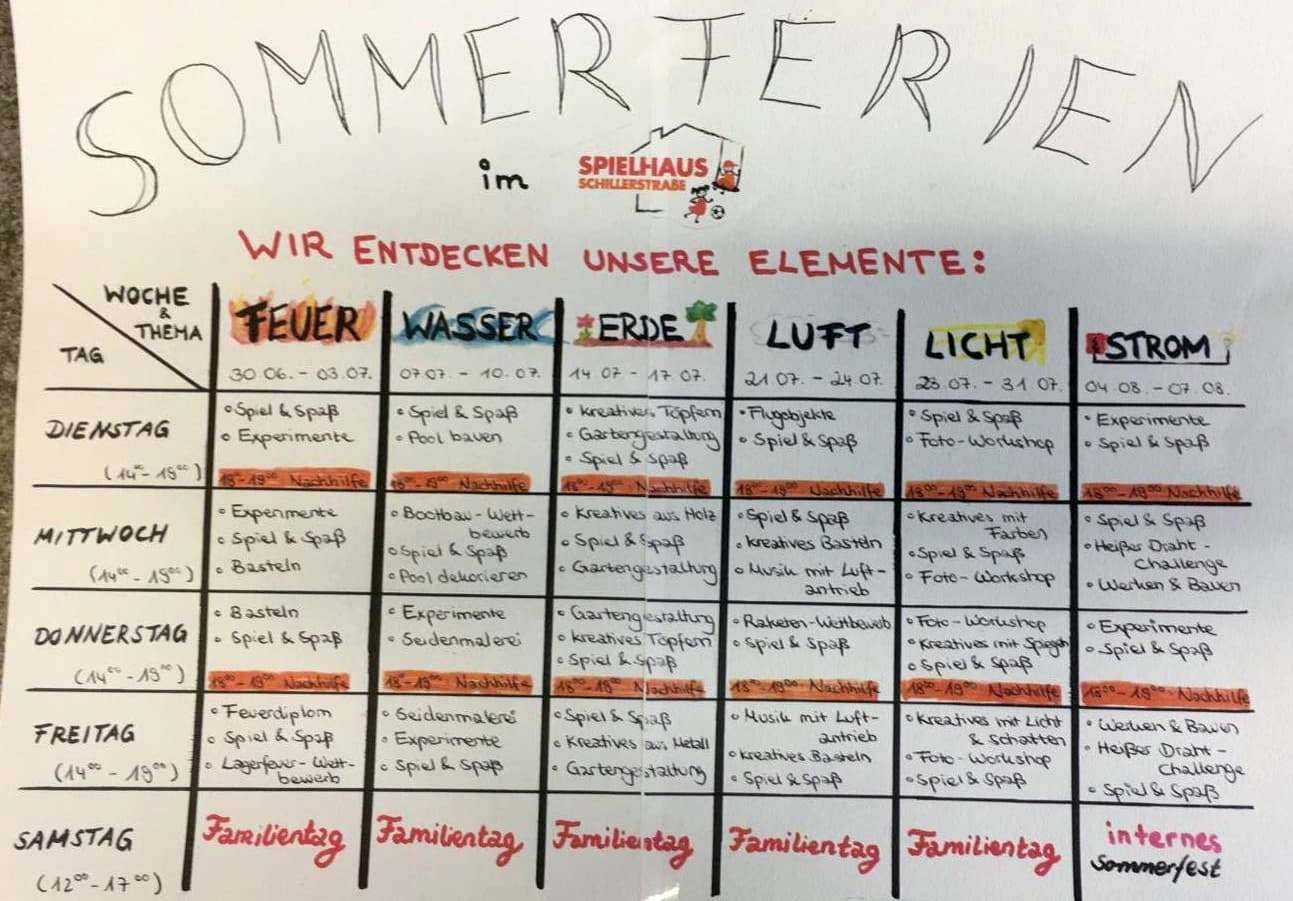 SOMMERFERIEN
im
SPIELHAUS
SCHILLERSTRAßE
WIR ENTDECKEN UNSERE ELEMENTE:
WOCHE
&
THEMA
TAG
FEUER
30.06. - 03.07.
WASSER
07.07. - 10.07.
ERDE
14.07 - 17.07.
LUFT
21.07. - 24.07.
LICHT
28.07. - 31.07.
STROM
04.08. - 07.08.
DIENSTAG
(14⁰⁰ - 19⁰⁰)
• Spiel & Spaß
• Experimente
18⁰⁰-19⁰⁰ Nachhilfe
• Spiel & Spaß
• Pool bauen
18⁰⁰-19⁰⁰ Nachhilfe
• kreatives Töpfern
• Gartengestaltung
• Spiel & Spaß
18⁰⁰-19⁰⁰ Nachhilfe
• Flugobjekte
• Spiel & Spaß
18⁰⁰-19⁰⁰ Nachhilfe
• Spiel & Spaß
• Foto-Workshop
18⁰⁰-19⁰⁰ Nachhilfe
• Experimente
• Spiel & Spaß
18⁰⁰-19⁰⁰ Nachhilfe
MITTWOCH
(14⁰⁰ - 19⁰⁰)
• Experimente
• Spiel & Spaß
• Basteln
• Bootbau-Wett-
bewerb
• Spiel & Spaß
• Pool dekorieren
• Kreatives aus Holz
• Spiel & Spaß
• Gartengestaltung
• Spiel & Spaß
• kreatives Basteln
• Musik mit Luft-
antrieb
• Kreatives mit
Farben
• Spiel & Spaß
• Foto-Workshop
• Spiel & Spaß
• Heißer Draht-
Challenge
• Werken & Bauen
DONNERSTAG
(14⁰⁰ - 19⁰⁰)
• Basteln
• Spiel & Spaß
18⁰⁰-19⁰⁰ Nachhilfe
• Experimente
• Seidenmalerei
18⁰⁰-19⁰⁰ Nachhilfe
• Gartengestaltung
• kreatives Töpfern
• Spiel & Spaß
18⁰⁰-19⁰⁰ Nachhilfe
• Raketen-Wettbewerb
• Spiel & Spaß
18⁰⁰-19⁰⁰ Nachhilfe
• Foto-Workshop
• Kreatives mit Spiegeln
• Spiel & Spaß
18⁰⁰-19⁰⁰ Nachhilfe
• Experimente
• Spiel & Spaß
18⁰⁰-19⁰⁰ Nachhilfe
FREITAG
(14⁰⁰ - 19⁰⁰)
• Feuerdiplom
• Spiel & Spaß
• Lagerfeuer-Wett-
bewerb
• Seidenmalerei
• Experimente
• Spiel & Spaß
• Spiel & Spaß
• Kreatives aus Metall
• Gartengestaltung
• Musik mit Luft-
antrieb
• kreatives Basteln
• Spiel & Spaß
• Kreatives mit Licht
& Schatten
• Foto-Workshop
• Spiel & Spaß
• Werken & Bauen
• Heißer Draht-
Challenge
• Spiel & Spaß
SAMSTAG
(12⁰⁰ - 17⁰⁰)
Familientag
Familientag
Familientag
Familientag
Familientag
internes
Sommerfest